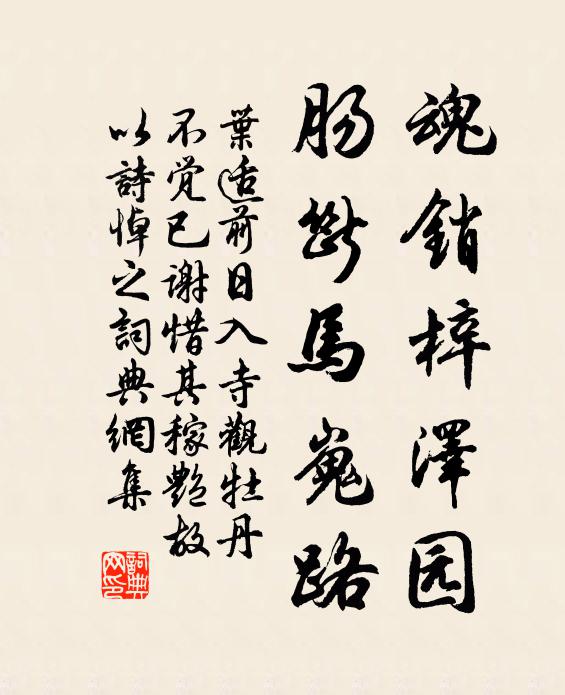 魂銷梓澤园
腸斷馬嵬路
葉适前日入寺觀牡丹
不觉已謝惜其稼艷故
以詩悼之詞典網集
詞典
网印